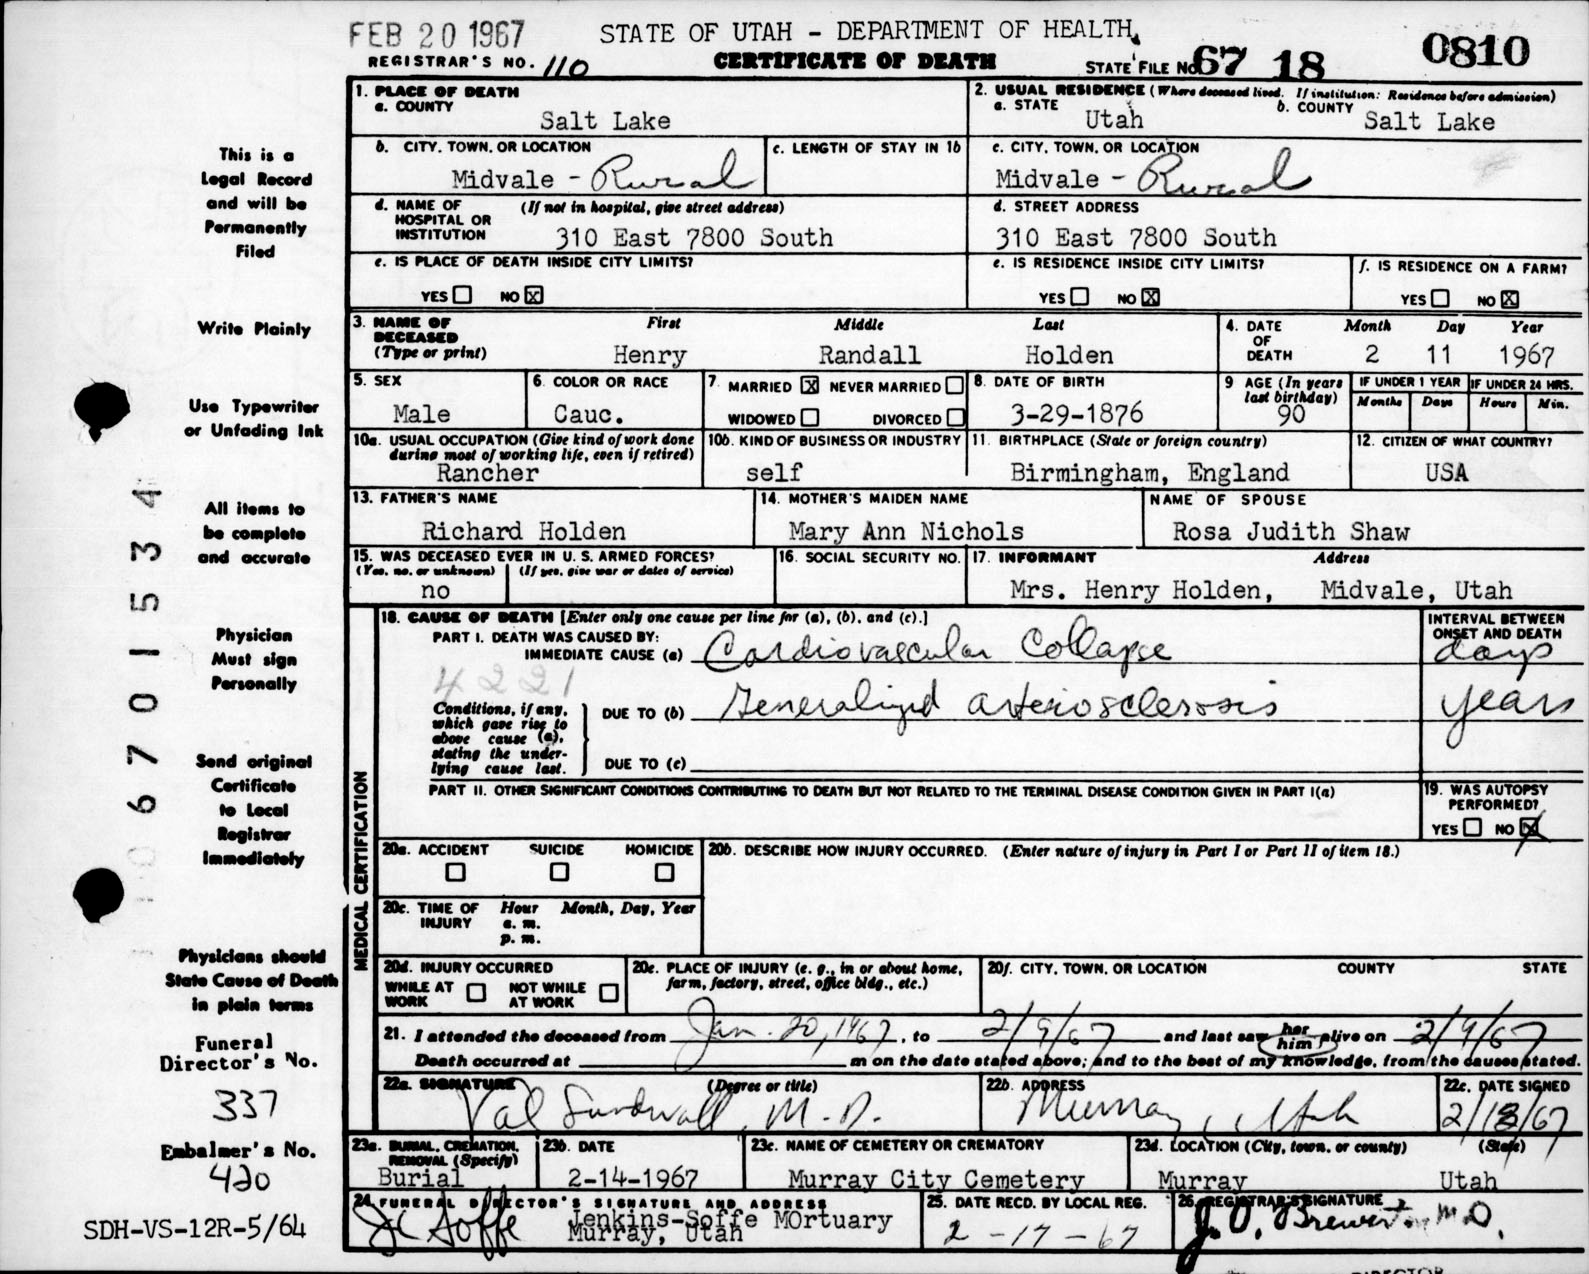 FEB 20 1967 STATE OF UTAH - DEPARTMENT OF HEALTH 0810
REGISTRAR'S NO. 110 CERTIFICATE OF DEATH STATE FILE NO. 67 18
This is a
Legal Record
and will be
Permanently
Filed
Write Plainly
Use Typewriter
or Unfading Ink
All items to
be complete
and accurate
Physician
Must sign
Personally
Send original
Certificate
to Local
Registrar
Immediately
Physicians should
State Cause of Death
in plain terms
Funeral
Director's No.
337
Embalmer's No.
420
SDH-VS-12R-5/64
06701534
1. PLACE OF DEATH
a. COUNTY
Salt Lake
2. USUAL RESIDENCE (Where deceased lived. If institution: Residence before admission)
a. STATE b. COUNTY
Utah Salt Lake
b. CITY, TOWN, OR LOCATION
Midvale - Rural
c. LENGTH OF STAY IN 1b
c. CITY, TOWN, OR LOCATION
Midvale - Rural
d. NAME OF (If not in hospital, give street address)
HOSPITAL OR
INSTITUTION
310 East 7800 South
d. STREET ADDRESS
310 East 7800 South
e. IS PLACE OF DEATH INSIDE CITY LIMITS?
YES NO X
e. IS RESIDENCE INSIDE CITY LIMITS?
YES NO X
f. IS RESIDENCE ON A FARM?
YES NO X
3. NAME OF First Middle Last
DECEASED
(Type or print)
Henry Randall Holden
4. DATE Month Day Year
OF
DEATH 2 11 1967
5. SEX
Male
6. COLOR OR RACE
Cauc.
7. MARRIED X NEVER MARRIED
WIDOWED DIVORCED
8. DATE OF BIRTH
3-29-1876
9 AGE (In years
last birthday)
90
IF UNDER 1 YEAR IF UNDER 24 HRS.
Months Days Hours Min.
10a. USUAL OCCUPATION (Give kind of work done
during most of working life, even if retired)
Rancher
10b. KIND OF BUSINESS OR INDUSTRY
self
11. BIRTHPLACE (State or foreign country)
Birmingham, England
12. CITIZEN OF WHAT COUNTRY?
USA
13. FATHER'S NAME
Richard Holden
14. MOTHER'S MAIDEN NAME
Mary Ann Nichols
NAME OF SPOUSE
Rosa Judith Shaw
15. WAS DECEASED EVER IN U. S. ARMED FORCES?
(Yes, no, or unknown) (If yes, give war or dates of service)
no
16. SOCIAL SECURITY NO.
17. INFORMANT Address
Mrs. Henry Holden, Midvale, Utah
MEDICAL CERTIFICATION
18. CAUSE OF DEATH [Enter only one cause per line for (a), (b), and (c).]
PART I. DEATH WAS CAUSED BY:
IMMEDIATE CAUSE (a) Cardiovascular Collapse
INTERVAL BETWEEN
ONSET AND DEATH
days
4221
Conditions, if any,
which gave rise to
above cause (a),
stating the under-
lying cause last.
DUE TO (b) Generalized arteriosclerosis years
DUE TO (c)
PART II. OTHER SIGNIFICANT CONDITIONS CONTRIBUTING TO DEATH BUT NOT RELATED TO THE TERMINAL DISEASE CONDITION GIVEN IN PART I(a)
19. WAS AUTOPSY
PERFORMED?
YES NO X
20a. ACCIDENT SUICIDE HOMICIDE
20b. DESCRIBE HOW INJURY OCCURRED. (Enter nature of injury in Part I or Part II of item 18.)
20c. TIME OF Hour Month, Day, Year
INJURY a. m.
p. m.
20d. INJURY OCCURRED
WHILE AT NOT WHILE
WORK AT WORK
20e. PLACE OF INJURY (e. g., in or about home,
farm, factory, street, office bldg., etc.)
20f. CITY, TOWN, OR LOCATION COUNTY STATE
21. I attended the deceased from Jan. 20, 1967, to 2/9/67 and last saw her him alive on 2/9/67
Death occurred at m on the date stated above; and to the best of my knowledge, from the causes stated.
22a. SIGNATURE (Degree or title)
Val Sundwall, M.D.
22b. ADDRESS
Murray, Utah
22c. DATE SIGNED
2/13/67
23a. BURIAL, CREMATION,
REMOVAL (Specify)
Burial
23b. DATE
2-14-1967
23c. NAME OF CEMETERY OR CREMATORY
Murray City Cemetery
23d. LOCATION (City, town, or county) (State)
Murray Utah
24. FUNERAL DIRECTOR'S SIGNATURE AND ADDRESS
Soffe Jenkins-Soffe MOrtuary
Murray, Utah
25. DATE RECD. BY LOCAL REG.
2-17-67
26. REGISTRAR'S SIGNATURE
J. D. Brewerton M.D.
DIRECTOR